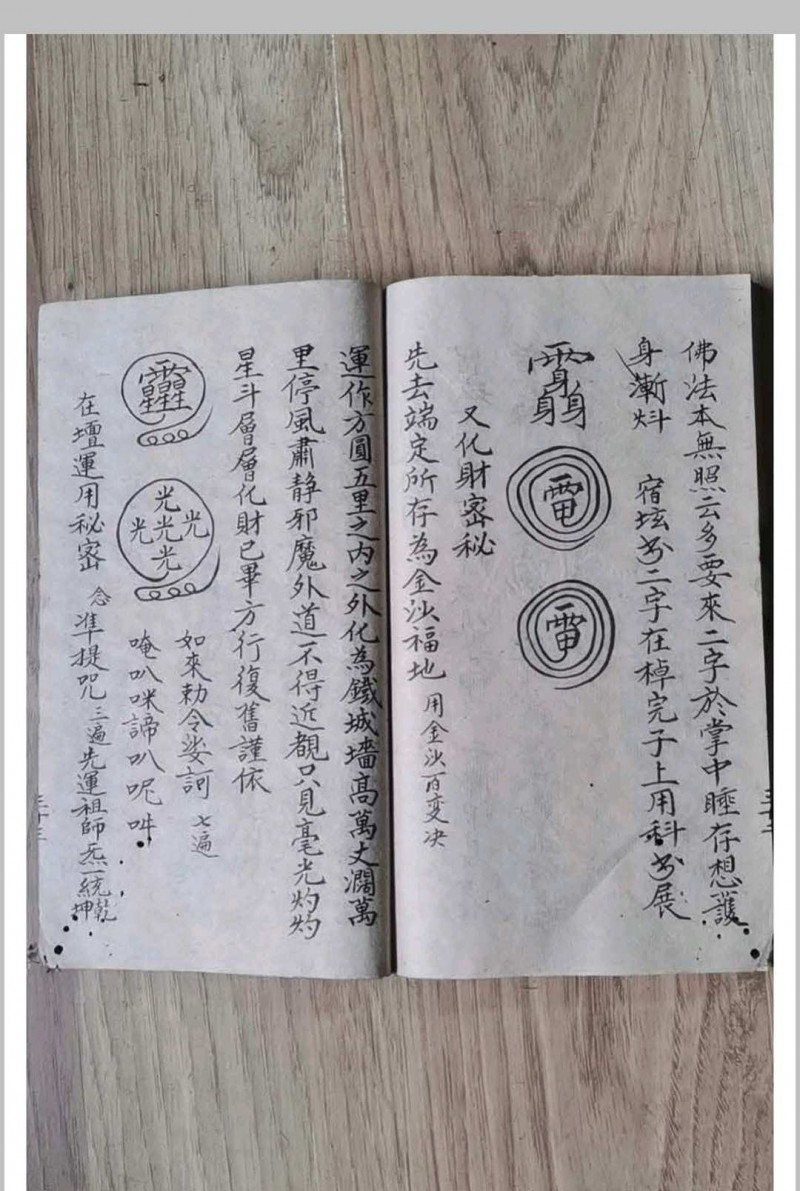 佛法本無照云多要來二字於掌中睡存想護
身漸炓 宿坛么二字在棹完子上用科么展
電
電
又化財密秘
先去端定所存為金沙福地 用金沙百变决
運作方圓五里之内之外化為鐵城墙高萬丈濶萬
里停風肅静邪魔外道不得近覩只見毫光灼灼
星斗層層化財已畢方行復舊謹依
光光光光光
如來勅令娑訶 七遍
唵叭咪諦叭呢吽
在壇運用秘密 念准提咒 三遍 先運祖師炁一統乾坤
三十二
三十三